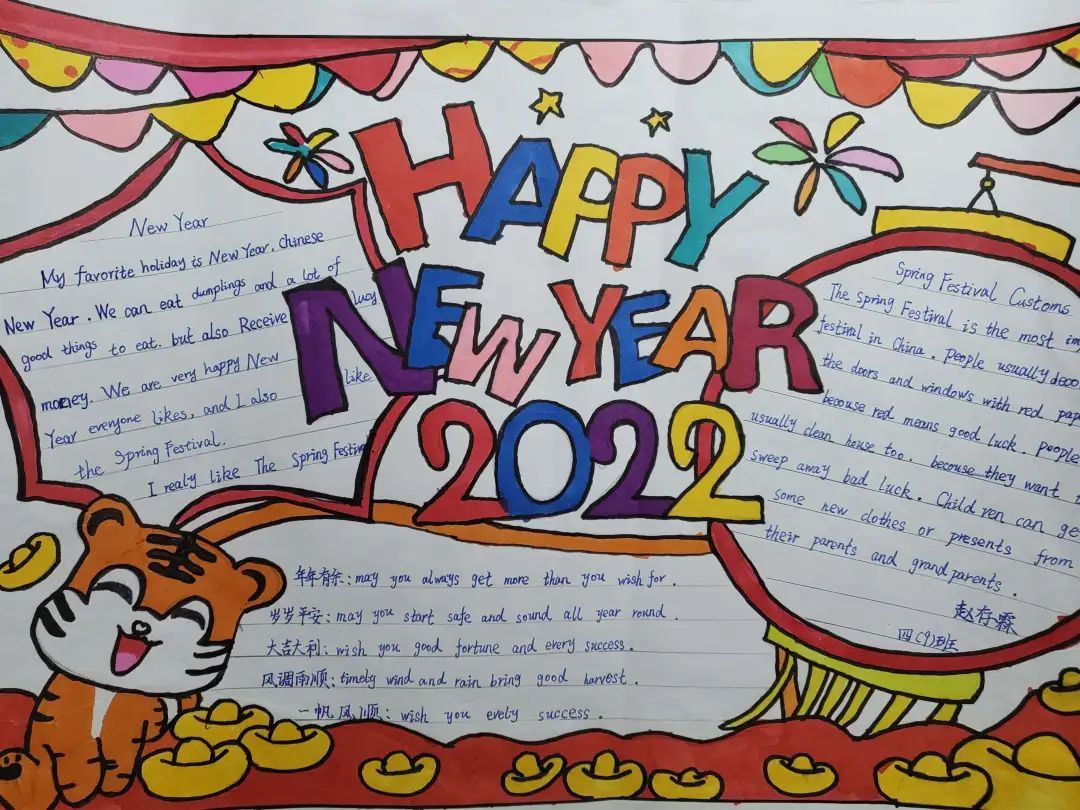 HAPPY
NEW YEAR
2022
New Year
My favorite holiday is New Year. Chinese
New Year. We can eat dumplings and a lot of
good things to eat. but also Receive lucy
money. We are very happy New
Year everyone likes, and I also like
the Spring Festival.
I realy like The Spring Festival
Spring Festival Customs
The spring Festival is the most im
festival in China. People usually deco
the doors and windows with red pap
becouse red means good luck. People
usually clean house too. becouse they want
sweep away bad luck. Children can ge
some new clothes or presents from
their parents and grandparents.
赵存霖
四(9)班
年年有余:may you always get more than you wish for.
岁岁平安:may you start safe and sound all year round.
大吉大利:wish you good fortune and every success.
风调雨顺:timely wind and rain bring good harvest.
一帆风顺:wish you evely success.